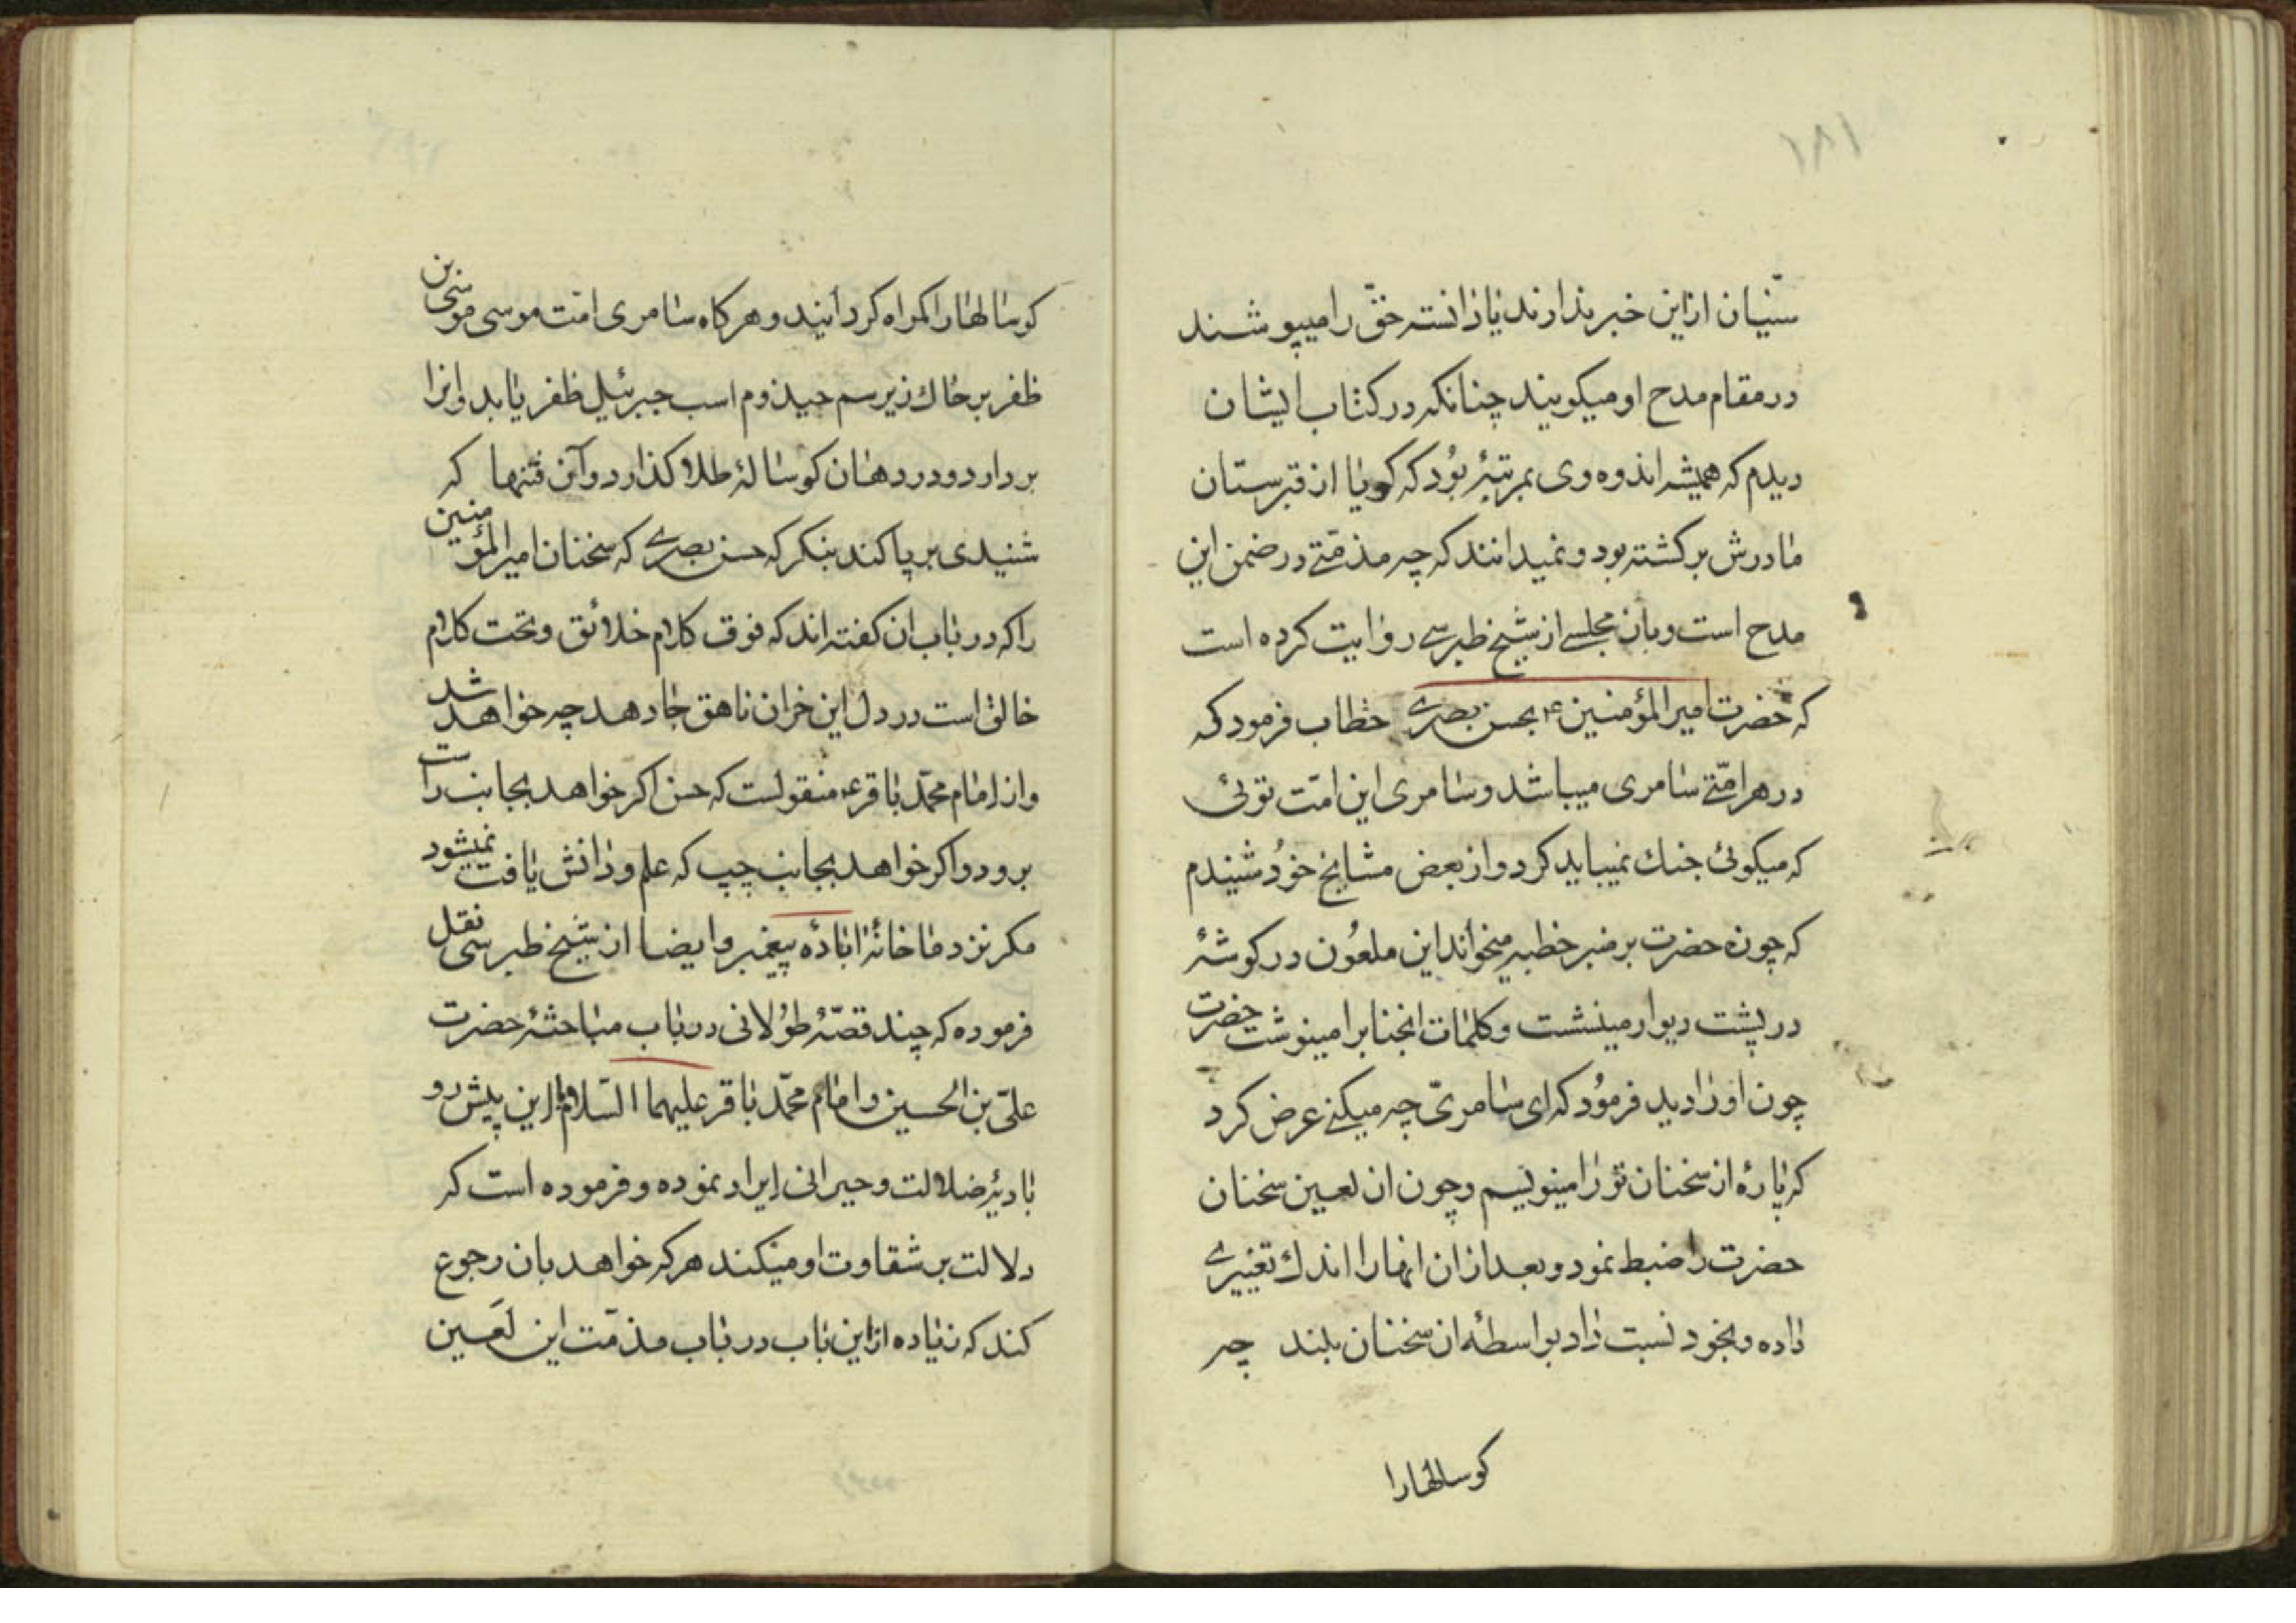 ١٨١
سنّیان ازاین خبر ندارند یا دانسته حقّ را میپوشند
در مقام مدح او میکویند چنانکه در کتاب ایشان
دیدم که همیشه اندوه وی بمرتبهٔ بُود که کویا از قبرستان
مادرش برکشته بود و نمیدانند که چه مذمّتے در ضمن این
مدح است وبان مجلسے از شیخ طبرسے روایت کرده است
که حضرت امیرالمؤمنین ع بحسن بصرے خطاب فرمود که
در هر امّتے سامری میباشد وسامری این امّت توئی
که میکوئی جنك نمیباید کرد واز بعض مشایخ خوُد شنیدم
که چون حضرت بر منبر خطبه میخواند این ملعُون در کوشهٔ
در پشت دیوار مینشست وکلمات انجنابرا مینوشت حضرت
چون اورا دید فرمُود که ای سامریّ چه میکنے عرض کرد
که پارهٔ از سخنان تورا مینویسم وچون ان لعین سخنان
حضرت را ضبط نمود وبعد ازان انها را اندك تغییرے
داده وبخود نسبت داد بواسطهٔ ان سخنان بلند چه
کوسالهارا
کوسالهارا کمراه کردانید و هرکاه سامری امّت موسی موسی بن
ظفر بر خاك زیر سم حیذوم اسب جبرئیل ظفر یابد وانرا
بردارد ودر دهان کوسالهٔ طلا کذارد وآن فتنها که
شنیدی بر پا کند بنکر که حسن بصرے که سخنان امیرالمؤمنین
را که در باب ان کفته اند که فوق کلام خلائق وتحت کلام
خالق است در دل این خران ناهق جا دهد چه خواهد شد
واز امام محمّد باقر ع منقولست که حسن اکر خواهد بجانب راست
برود واکر خواهد بجانب چپ که علم ودانش یافت نمیشود
مکر نزد ما خانهٔ اباده پیغمبر وایضا از شیخ طبرسی نقل
فرموده که چند قصّهٔ طوُلانی در باب مباحثهٔ حضرت
علیّ بن الحسین وامام محمّد باقر علیهما السّلام با این پیش رو
بادیهٔ ضلالت وحیرانی ایراد نموده وفرموده است که
دلالت بر شقاوت او میکند هرکه خواهد بان رجوع
کند که زیاده ازاین باب در باب مذمّت این لَعین